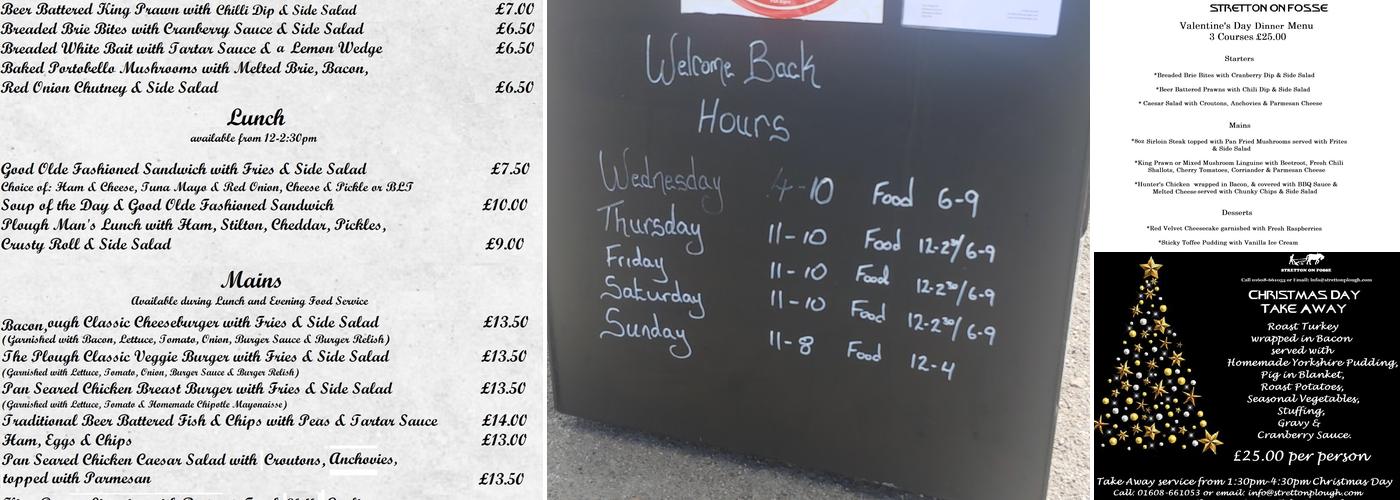 Beer Battered King Prawn with Chilli Dip & Side Salad £7.00
Breaded Brie Bites with Cranberry Sauce & Side Salad £6.50
Breaded White Bait with Tartar Sauce & a Lemon Wedge £6.50
Baked Portobello Mushrooms with Melted Brie, Bacon,
Red Onion Chutney & Side Salad £6.50
Lunch
available from 12-2:30pm
Good Olde Fashioned Sandwich with Fries & Side Salad £7.50
Choice of: Ham & Cheese, Tuna Mayo & Red Onion, Cheese & Pickle or BLT
Soup of the Day & Good Olde Fashioned Sandwich £10.00
Plough Man's Lunch with Ham, Stilton, Cheddar, Pickles,
Crusty Roll & Side Salad £9.00
Mains
Available during Lunch and Evening Food Service
Bacon,ough Classic Cheeseburger with Fries & Side Salad £13.50
(Garnished with Bacon, Lettuce, Tomato, Onion, Burger Sauce & Burger Relish)
The Plough Classic Veggie Burger with Fries & Side Salad £13.50
(Garnished with Lettuce, Tomato, Onion, Burger Sauce & Burger Relish)
Pan Seared Chicken Breast Burger with Fries & Side Salad £13.50
(Garnished with Lettuce, Tomato & Homemade Chipotle Mayonaisse)
Traditional Beer Battered Fish & Chips with Peas & Tartar Sauce £14.00
Ham, Eggs & Chips £13.00
Pan Seared Chicken Caesar Salad with Croutons, Anchovies,
topped with Parmesan £13.50
Welcome Back
Hours
Wednesday 4-10 Food 6-9
Thursday 11-10 Food 12-2³⁰/6-9
Friday 11-10 Food 12-2³⁰/6-9
Saturday 11-10 Food 12-2³⁰/6-9
Sunday 11-8 Food 12-4
STRETTON ON FOSSE
Valentine's Day Dinner Menu
3 Courses £25.00
Starters
*Breaded Brie Bites with Cranberry Dip & Side Salad
*Beer Battered Prawns with Chili Dip & Side Salad
* Caesar Salad with Croutons, Anchovies & Parmesan Cheese
Mains
*8oz Sirloin Steak topped with Pan Fried Mushrooms served with Frites
& Side Salad
*King Prawn or Mixed Mushroom Linguine with Beetroot, Fresh Chili
Shallots, Cherry Tomatoes, Corriander & Parmesan Cheese
*Hunter's Chicken wrapped in Bacon, & covered with BBQ Sauce &
Melted Cheese served with Chunky Chips & Side Salad
Desserts
*Red Velvet Cheesecake garnished with Fresh Raspberries
*Sticky Toffee Pudding with Vanilla Ice Cream
STRETTON ON FOSSE
Call 01608-661053 or Email: info@strettonplough.com
CHRISTMAS DAY
TAKE AWAY
Roast Turkey
wrapped in Bacon
served with
Homemade Yorkshire Pudding,
Pig in Blanket,
Roast Potatoes,
Seasonal Vegetables,
Stuffing,
Gravy &
Cranberry Sauce.
£25.00 per person
Take Away service from 1:30pm-4:30pm Christmas Day
Call: 01608-661053 or email: info@strettonplough.com